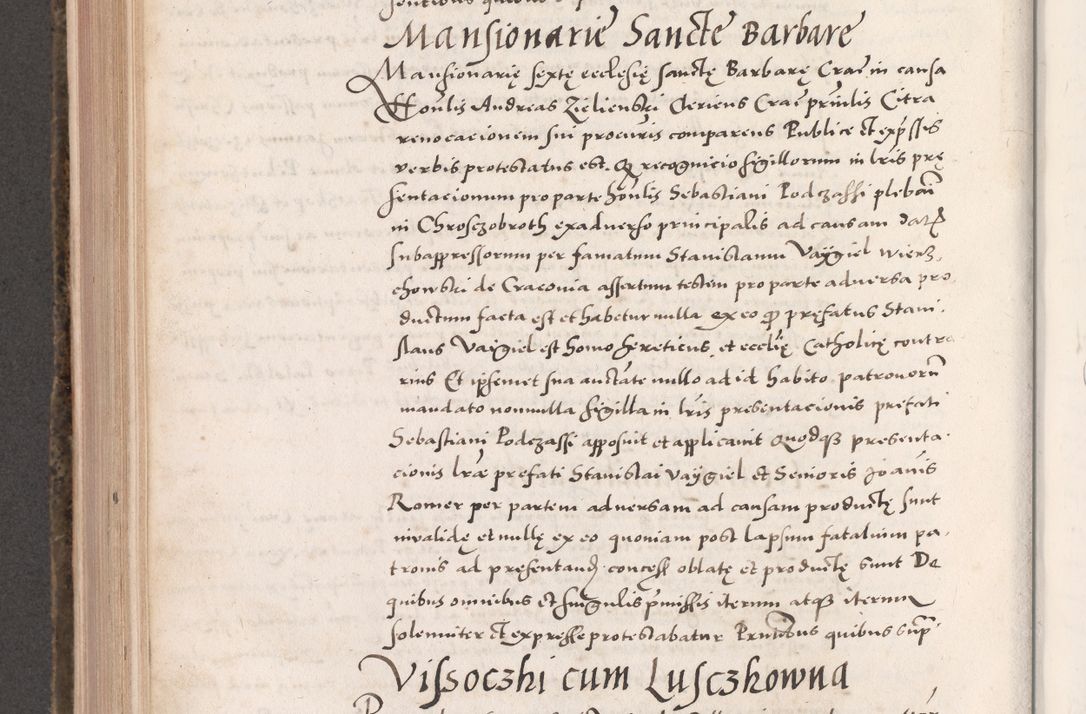 Mansionarie Sancte Barbare
Mansionarię sextę ecclesię sanctę Barbarę Crac in causa
Honlis Andreas Zielienski Clericus Crac prnilis Citra
renocacionem sui procuris comparens Publice et expssis
verbis protestatus est. Q recognicio sigillorum in lris prę
sentacionum pro parte honlis Sebastiani Podczassi plebani
in Chrosczobroth ex adnerso principalis ad causam datar
subappressorum per famatum Stanislaum Vaygiel Wierz
chowski de Craconia assertum testem pro parte adversa pro
ductum facta est et habetur nulla ex eo q pręfatus Stani
slaus Vaygiel est homo hereticus, et ecclię Catholicę contra
rius Et ipsemet sua auctate nullo ad id habito patronorum
mandato nonnulla sigilla in lris presentacionis prefati
Sebastiani Podczassi apposuit et applicauit Quodq presenta
cionis lrae prefati Stanislai Vaygiel et Senioris Joanis
Romer per partem aduersam ad causam productę sunt
inualidę et nullę ex eo quoniam post lapsum fatalium pa
tronis ad pręsentand concess oblatę et productę sunt De
quibus omnibus et singulis pmissis iterum atq iterum
solenniter et expresse protestabatur Pntibus quibus supr
Vissoczhi cum Lusczkowna